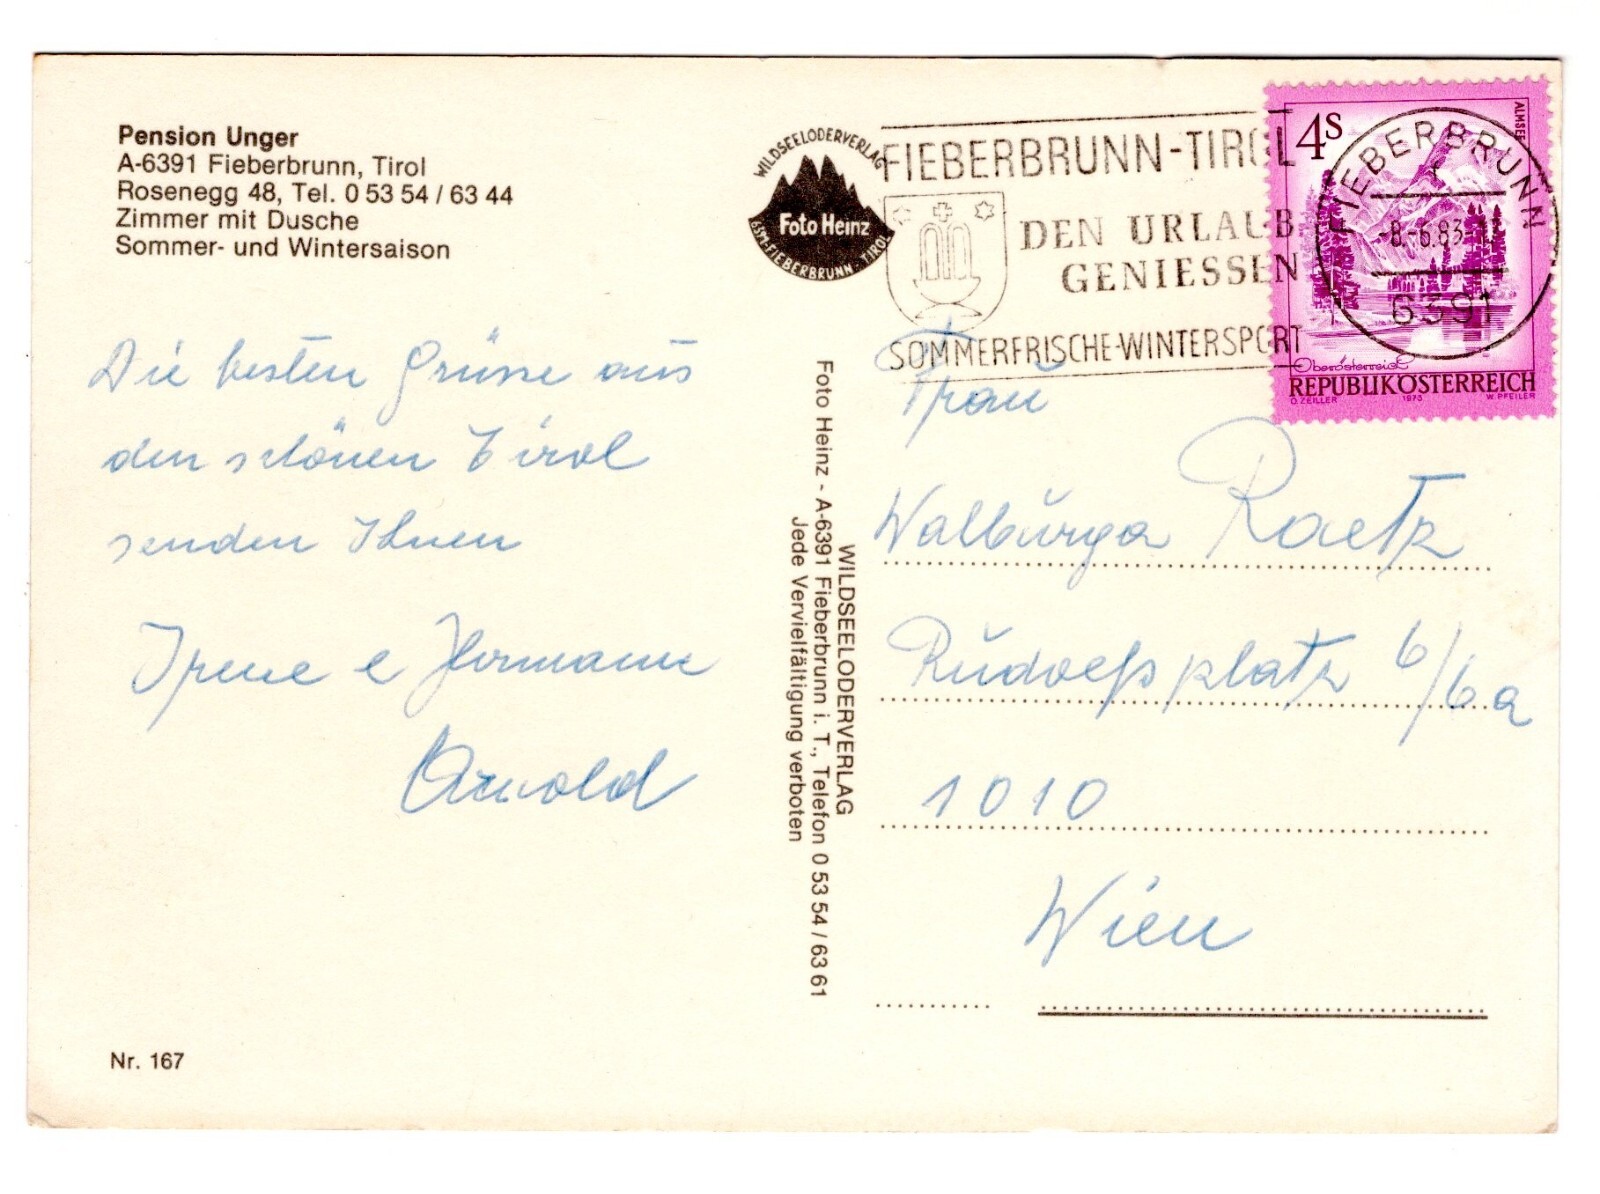 Pension Unger
A-6391 Fieberbrunn, Tirol
Rosenegg 48, Tel. 0 53 54 / 63 44
Zimmer mit Dusche
Sommer- und Wintersaison
Die besten Grüsse aus
den schönen Tirol
senden Ihnen
Irene e Hermann
Arnold
Nr. 167
WILDSEELODERVERLAG
Foto Heinz
6391-FIEBERBRUNN-TIROL
WILDSEELODERVERLAG
Foto Heinz - A-6391 Fieberbrunn i. T., Telefon 0 53 54 / 63 61
Jede Vervielfältigung verboten
FIEBERBRUNN-TIROL
DEN URLAUB
GENIESSEN
SOMMERFRISCHE-WINTERSPORT
4S
ALMSEE
FIEBERBRUNN
-8.-6.83-
6391
Oberösterreich
REPUBLIK ÖSTERREICH
O. ZEILLER 1973 W. PFEILER
Frau
Walburga Raetz
Rudolfsplatz 6/6a
1010
Wien